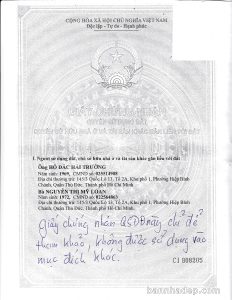 CỘNG HÒA XÃ HỘI CHỦ NGHĨA VIỆT NAM
Độc lập - Tự do - Hạnh phúc
GIẤY CHỨNG NHẬN
QUYỀN SỬ DỤNG ĐẤT
QUYỀN SỞ HỮU NHÀ Ở VÀ TÀI SẢN KHÁC GẮN LIỀN VỚI ĐẤT
I. Người sử dụng đất, chủ sở hữu nhà ở và tài sản khác gắn liền với đất
Ông HỒ ĐẮC HẢI TRƯỜNG
Năm sinh: 1969, CMND số:
Địa chỉ thường trú: 145/3 Quốc Lộ 13, Tổ 2A, Khu phố 1, Phường Hiệp Bình
Chánh, Quận Thủ Đức, Thành phố Hồ Chí Minh
Bà NGUYỄN THỊ MỸ LOAN
Năm sinh: 1972, CMND số:
Địa chỉ thường trú: 145/3 Quốc Lộ 13, Tổ 2A, Khu phố 1, Phường Hiệp Bình
Chánh, Quận Thủ Đức, Thành phố Hồ Chí Minh
Giấy chứng nhận QSDĐ này chỉ để
tham khảo, không được sử dụng vào
mục đích khác.
CI 808205
bannhadep.com